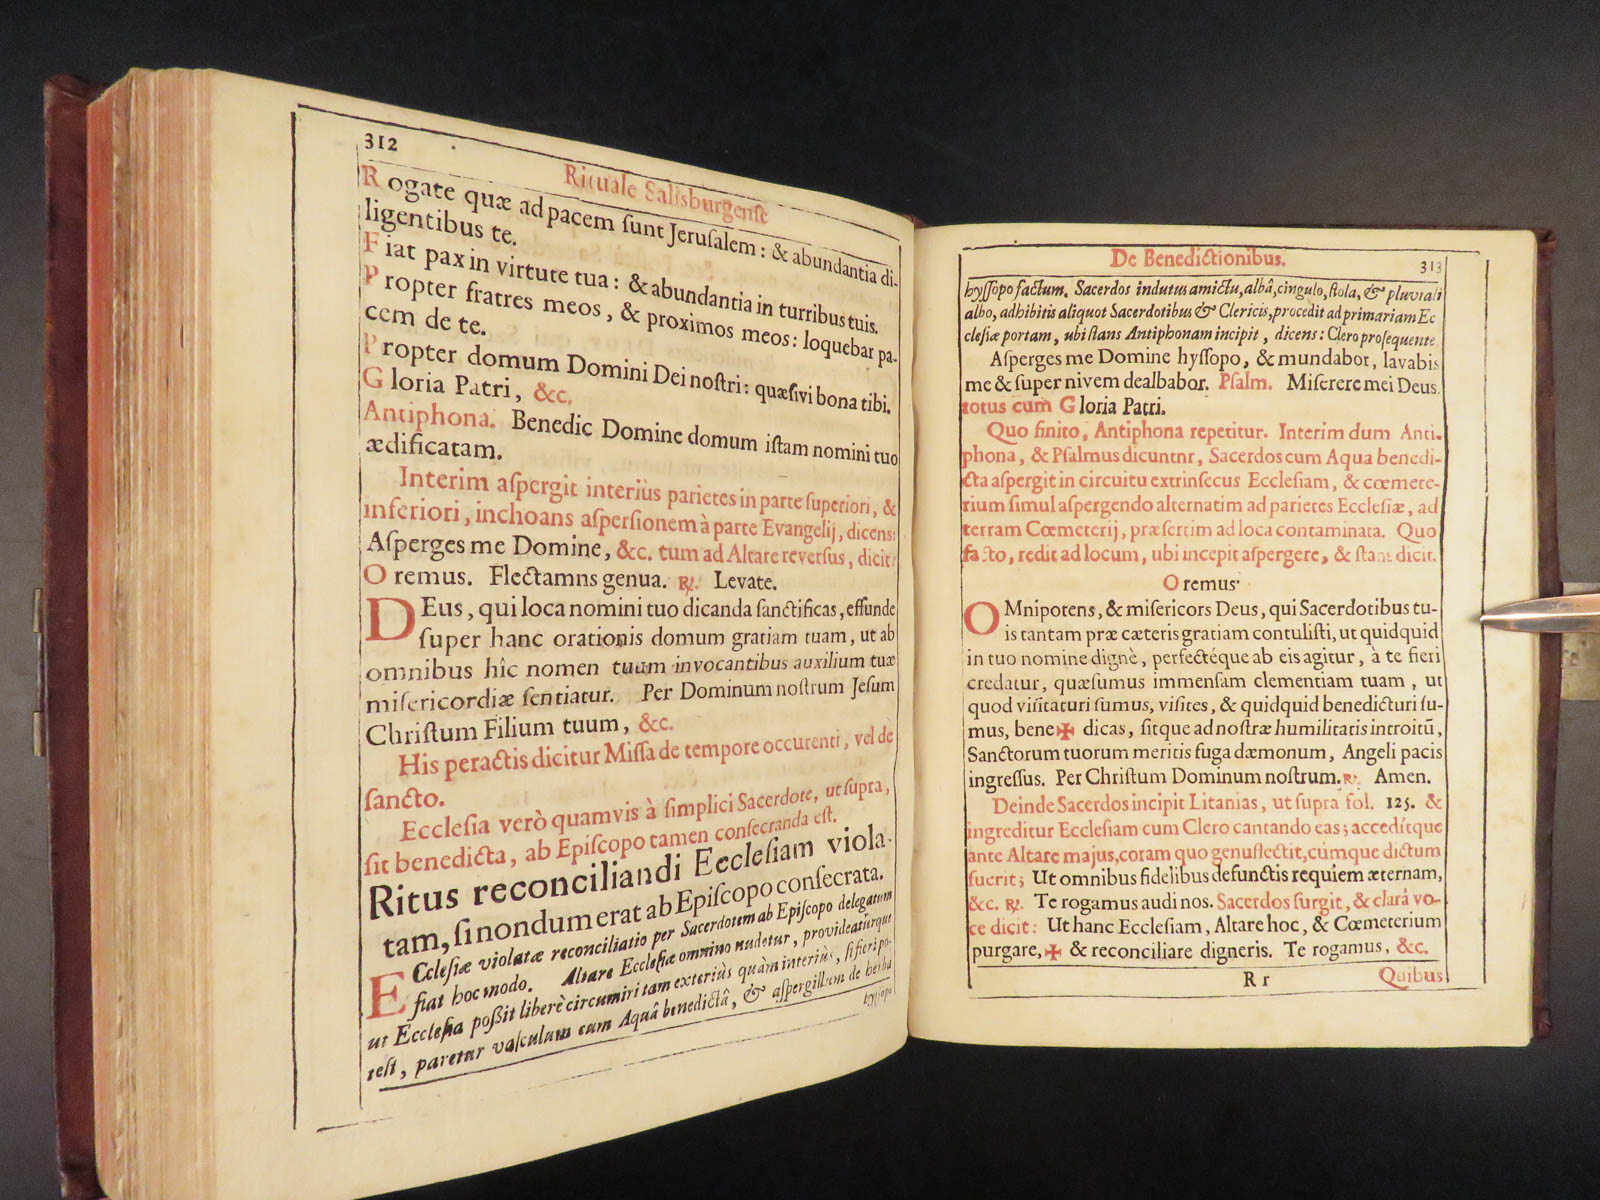 312
Rituale Saliſburgenſe
Rogate quæ ad pacem ſunt Jeruſalem: & abundantia di-
ligentibus te.
Fiat pax in virtute tua: & abundantia in turribus tuis.
Propter fratres meos, & proximos meos: loquebar pa-
cem de te.
Propter domum Domini Dei noſtri: quæſivi bona tibi.
Gloria Patri, &c.
Antiphona. Benedic Domine domum iſtam nomini tuo
ædificatam.
Interim aſpergit interiùs parietes in parte ſuperiori, &
inferiori, inchoans aſperſionem à parte Evangelij, dicens:
Aſperges me Domine, &c. tum ad Altare reverſus, dicit:
Oremus. Flectamns genua. ℟. Levate.
DEus, qui loca nomini tuo dicanda ſanctificas, effunde
ſuper hanc orationis domum gratiam tuam, ut ab
omnibus hîc nomen tuum invocantibus auxilium tuæ
miſericordiæ ſentiatur. Per Dominum noſtrum Jeſum
Chriſtum Filium tuum, &c.
His peractis dicitur Miſſa de tempore occurenti, vel de
ſancto.
Eccleſia verò quamvis à ſimplici Sacerdote, ut ſupra,
ſit benedicta, ab Epiſcopo tamen conſecranda eſt.
Ritus reconciliandi Eccleſiam viola-
tam, ſi nondum erat ab Epiſcopo conſecrata.
ECcleſiæ violatæ reconciliatio per Sacerdotem ab Epiſcopo delegatum
fiat hoc modo. Altare Eccleſiæ omnino nudetur, provideatúrque
ut Eccleſia poßit liberè circumiri tam exteriùs quàm interiùs, ſi fieri po-
teſt, paretur vaſculum cum Aquâ benedictâ, & aſpergillum de herba
hyſſopo
De Benedictionibus.
313
hyſſopo factum. Sacerdos indutus amictu, albâ, cingulo, ſtola, & pluviali
albo, adhibitis aliquot Sacerdotibus & Clericis, procedit ad primariam Ec
cleſiæ portam, ubi ſtans Antiphonam incipit, dicens: Clero proſequente.
Aſperges me Domine hyſſopo, & mundabor, lavabis
me & ſuper nivem dealbabor. Pſalm. Miſerere mei Deus.
totus cum Gloria Patri.
Quo finito, Antiphona repetitur. Interim dum Anti-
phona, & Pſalmus dicuntnr, Sacerdos cum Aqua benedi-
cta aſpergit in circuitu extrinſecus Eccleſiam, & cœmete-
rium ſimul aſpergendo alternatim ad parietes Eccleſiæ, ad
terram Cœmeterij, præſertim ad loca contaminata. Quo
facto, redit ad locum, ubi incepit aſpergere, & ſtans dicit.
Oremus.
OMnipotens, & miſericors Deus, qui Sacerdotibus tu-
is tantam præ cæteris gratiam contuliſti, ut quidquid
in tuo nomine dignè, perfectéque ab eis agitur, à te fieri
credatur, quæſumus immenſam clementiam tuam, ut
quod viſitaturi ſumus, viſites, & quidquid benedicturi ſu-
mus, bene✠dicas, ſitque ad noſtræ humilitatis introitū,
Sanctorum tuorum meritis fuga dæmonum, Angeli pacis
ingreſſus. Per Chriſtum Dominum noſtrum. ℟. Amen.
Deinde Sacerdos incipit Litanias, ut ſupra fol. 125. &
ingreditur Eccleſiam cum Clero cantando eas; accedítque
ante Altare majus, coram quo genuflectit, cùmque dictum
fuerit; Ut omnibus fidelibus defunctis requiem æternam,
&c. ℟. Te rogamus audi nos. Sacerdos ſurgit, & clarâ vo-
ce dicit: Ut hanc Eccleſiam, Altare hoc, & Cœmeterium
purgare, ✠ & reconciliare digneris. Te rogamus, &c.
R r
Quibus